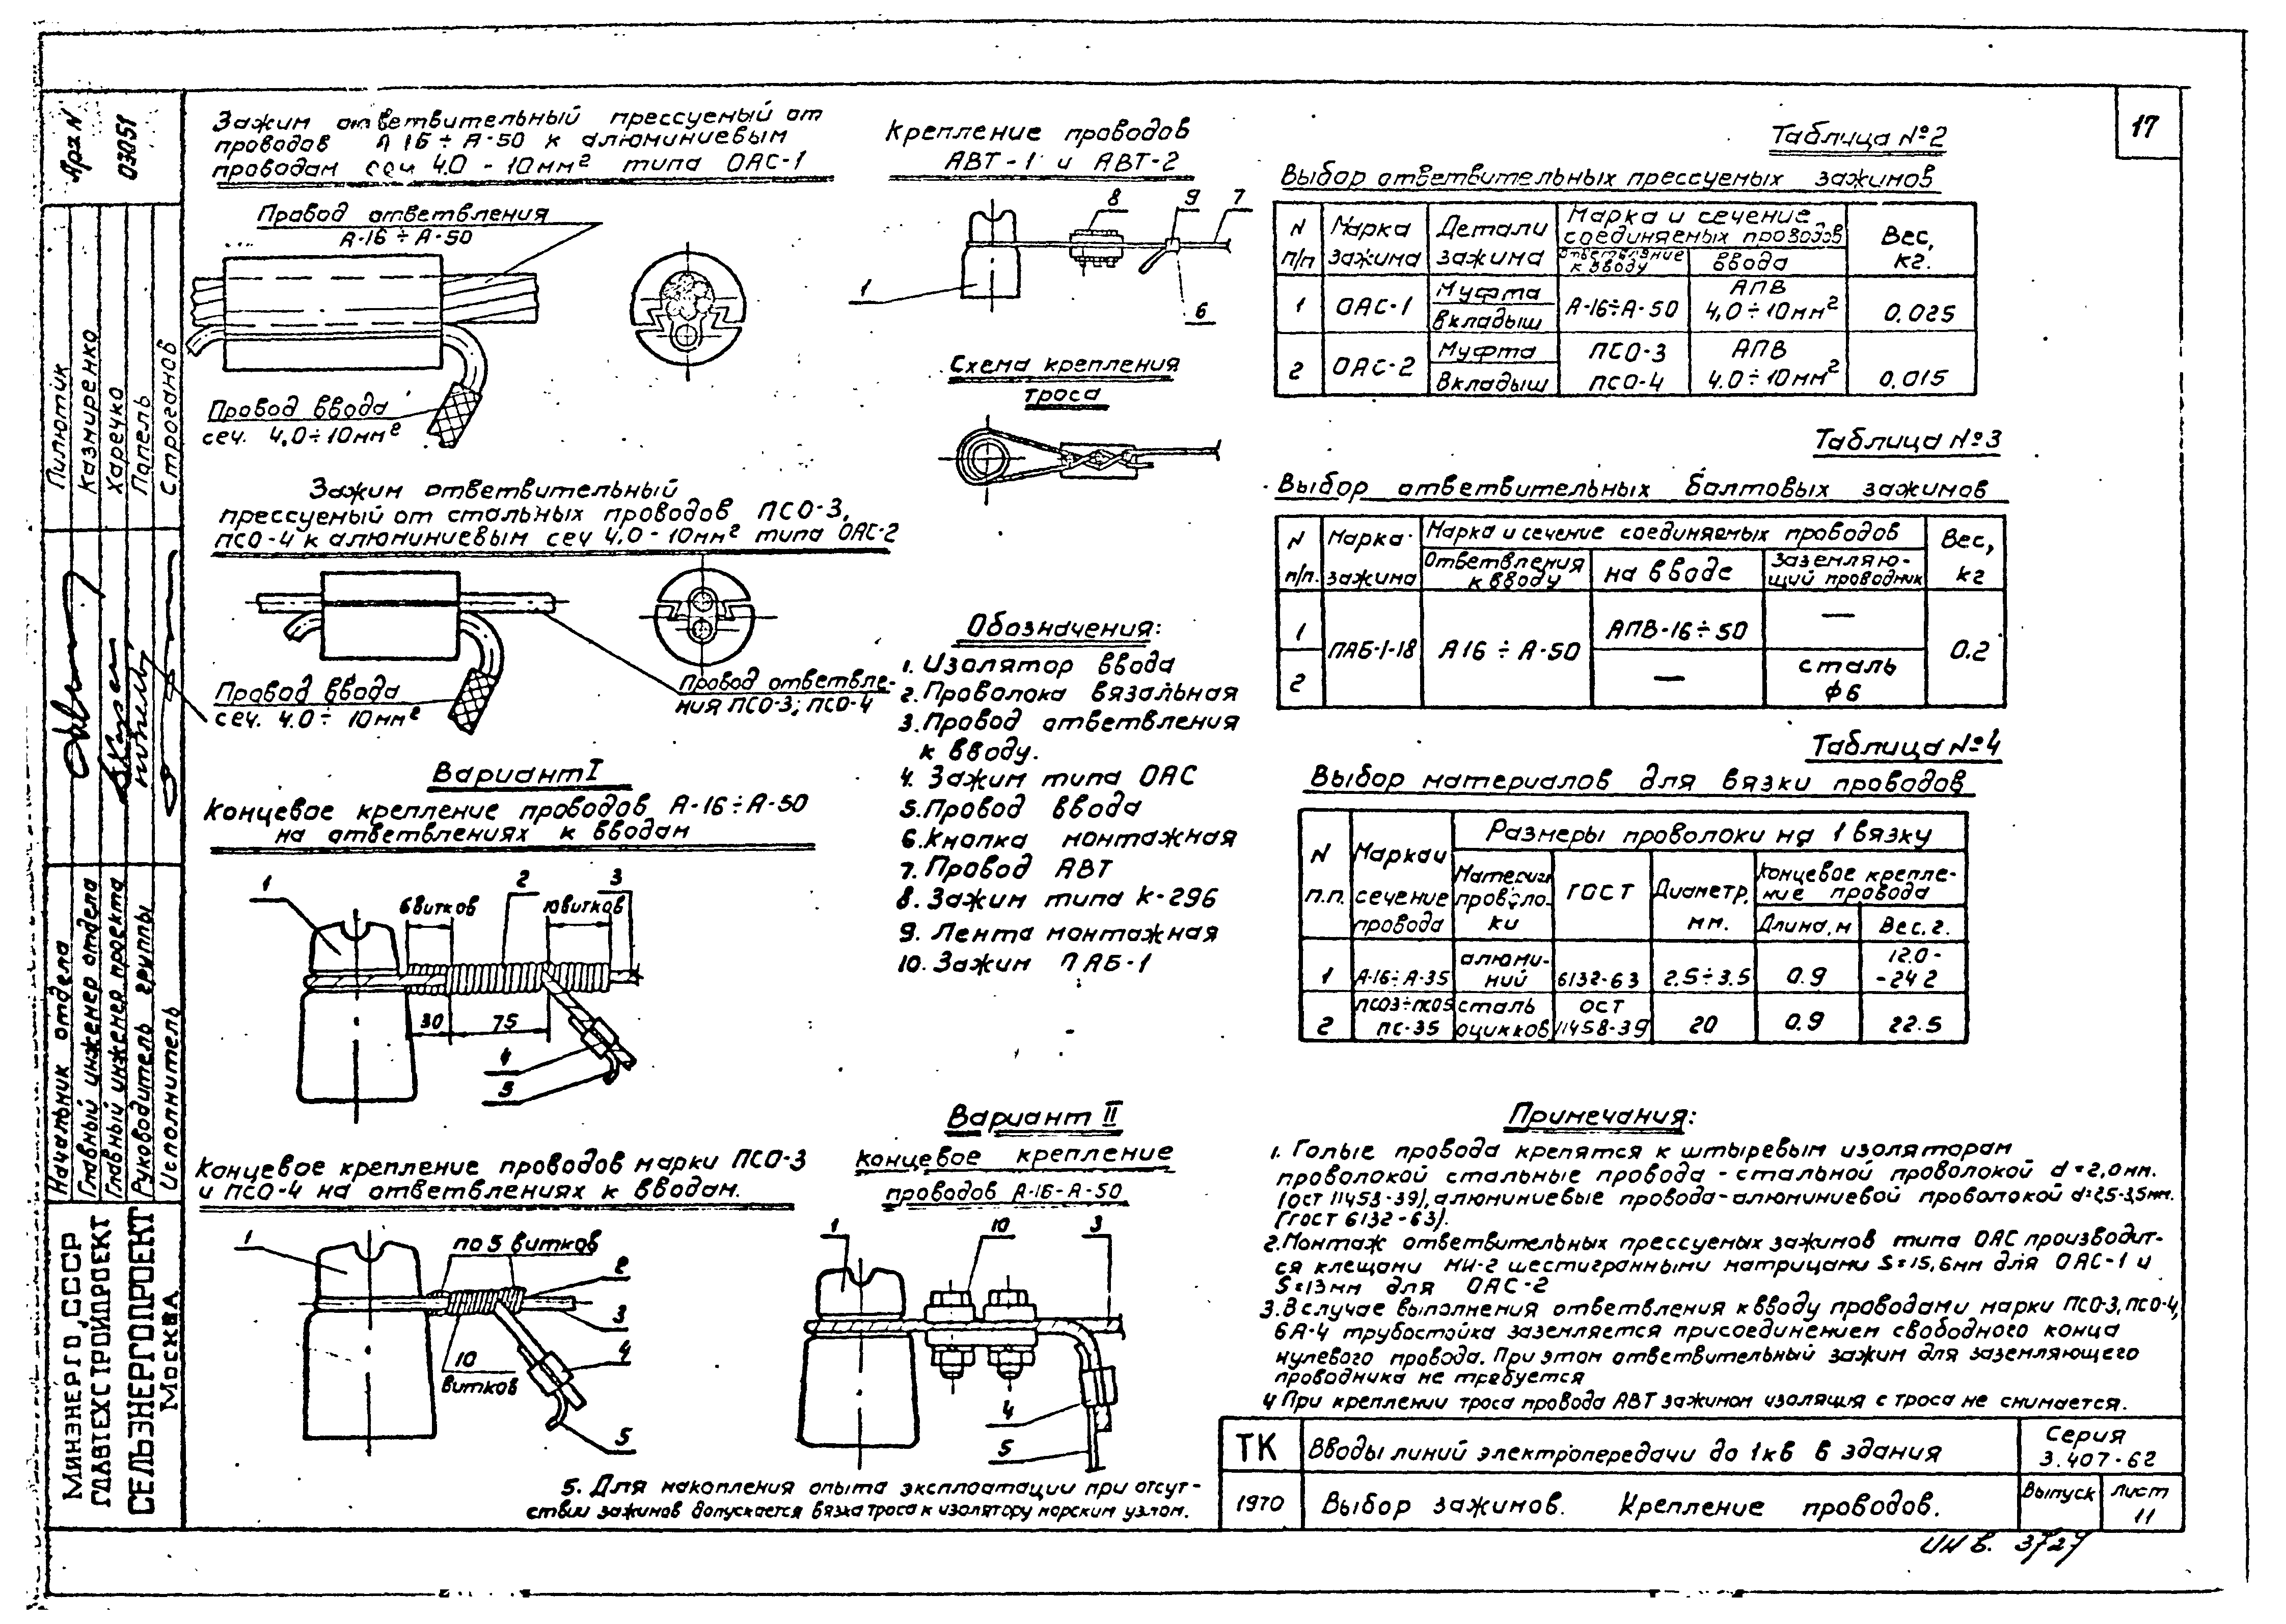 17
Арх N
03051
Пилютик
Казмиренко
Харечко
Папель
Строганов
Начальник отдела
Главный инженер отдела
Главный инженер проекта
Руководитель группы
Исполнитель
МИНЭНЕРГО СССР
ГЛАВТЕХСТРОЙПРОЕКТ
СЕЛЬЭНЕРГОПРОЕКТ
МОСКВА
Зажим ответвительный прессуемый от
проводов А 16 ÷ А-50 к алюминиевым
проводам сеч 4.0 - 10мм² типа ОАС-1
Провод ответвления
А-16 ÷ А-50
Провод ввода
сеч. 4,0÷10мм²
Зажим ответвительный
прессуемый от стальных проводов ПСО-3,
ПСО-4 к алюминиевым сеч 4,0-10мм² типа ОАС-2
Провод ввода
сеч. 4.0 ÷ 10мм²
Провод ответвле-
ния ПСО-3; ПСО-4
Вариант I
Концевое крепление проводов А-16÷А-50
на ответвлениях к вводам
1
6витков
2
10витков
3
30
75
4
5
Концевое крепление проводов марки ПСО-3
и ПСО-4 на ответвлениях к вводам.
1
по 5 витков
2
3
10
витков
4
5
Крепление проводов
АВТ-1 и АВТ-2
8
9
7
1
6
Схема крепления
троса
Обозначения:
1. Изолятор ввода
2. Проволока вязальная
3. Провод ответвления
к вводу.
4. Зажим типа ОАС
5. Провод ввода
6. Кнопка монтажная
7. Провод АВТ
8. Зажим типа К-296
9. Лента монтажная
10. Зажим ПАБ-1
Вариант II
Концевое крепление
проводов А-16-А-50
1
10
3
4
5
Таблица №2
Выбор ответвительных прессуемых зажимов
N п/п Марка зажима Детали зажима Марка и сечение соединяемых проводов Вес, кг.
Ответвление к вводу ввода
1 ОАС-1 Муфта вкладыш А-16÷А-50 АПВ 4,0÷10мм² 0.025
2 ОАС-2 Муфта Вкладыш ПСО-3 ПСО-4 АПВ 4.0÷10мм² 0,015
Таблица №3
Выбор ответвительных болтовых зажимов
N п/п. Марка зажима Марка и сечение соединяемых проводов Вес, кг
Ответвления к вводу на вводе Заземляю-щий проводник
1 ПАБ-1-18 А16 ÷ А-50 АПВ-16÷50 — 0.2
2 — сталь ф6
Таблица №4
Выбор материалов для вязки проводов
N п.п. Марка и сечение провода Размеры проволоки на 1 вязку
Материал проволо-ки ГОСТ Диаметр, мм. Концевое крепле-ние провода
Длина, м Вес, г.
1 А-16÷А-35 алюми-ний 6132-63 2.5÷3.5 0.9 12.0--24 2
2 ПСО3÷ПСО5 ПС-35 сталь оцинков ОСТ 11458-39 20 0.9 22.5
Примечания:
1. Голые провода крепятся к штыревым изоляторам
проволокой стальные провода - стальной проволокой d=2,0мм.
(ост 11453-39), алюминиевые провода-алюминиевой проволокой d=2,5-3,5мм.
(гост 6132-63).
2. Монтаж ответвительных прессуемых зажимов типа ОАС производит-
ся клещами МИ-2 шестигранными матрицами S=15,6мм для ОАС-1 и
S=13мм для ОАС-2
3. В случае выполнения ответвления к вводу проводами марки ПСО-3, ПСО-4,
БА-4 трубостойка заземляется присоединением свободного конца
нулевого провода. При этом ответвительный зажим для заземляющего
проводника не требуется
4 При креплении троса провода АВТ зажимом изоляция с троса не снимается.
5. Для накопления опыта эксплоатации при отсут-
ствии зажимов допускается вязка троса к изолятору морским узлом.
ТК
1970
Вводы линий электропередачи до 1кв в здания
Серия
3.407-62
Выбор зажимов. Крепление проводов.
Выпуск
Лист
11
ИНВ. 3727